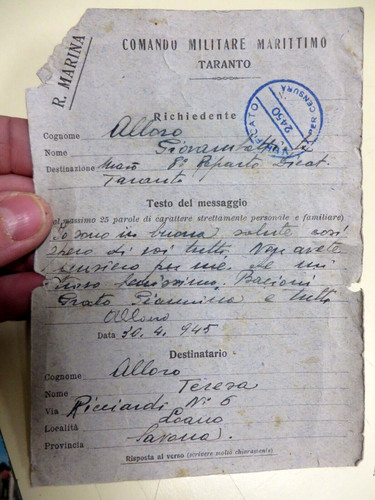 R. MARINA
COMANDO MILITARE MARITTIMO
TARANTO
VERIFICATO PER CENSURA
2450
Richiedente
Cognome Alloro
Nome Giovambattista
Destinazione 8° Reparto
Taranto
Testo del messaggio
(al massimo 25 parole di carattere strettamente personale e familiare)
Io sono in buona salute così
spero di voi tutti. Non avete
pensiero per me. Bacioni
Prato Giannina e tutti
Alloro
Data 30.4.945
Destinatario
Cognome Alloro
Nome Teresa
Via Ricciardi N° 6
Località Loano
Provincia Savona.
Risposta al verso (scrivere molto chiaramente)